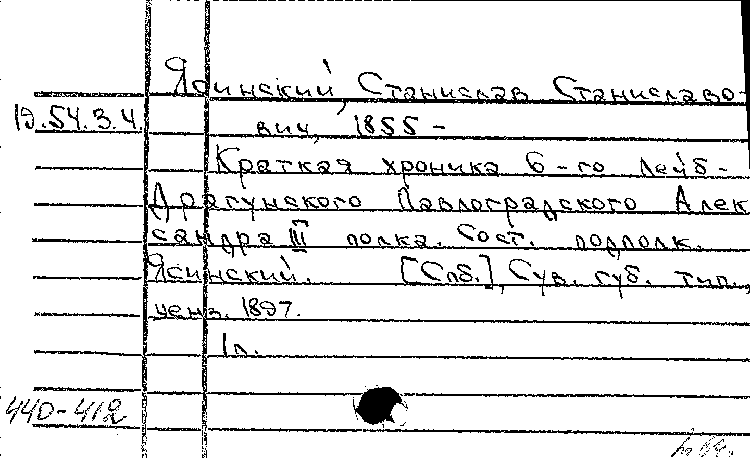 Ясинский, Станислав Станиславо-
19.54.3.4. вич, 1855 -
Краткая хроника 6-го Лейб-
Драгунского Павлоградского Алек
сандра III полка. Сост. подполк.
Ясинский. [Спб.], Сув. губ. тип.,
ценз. 1897.
1 л.
440-412